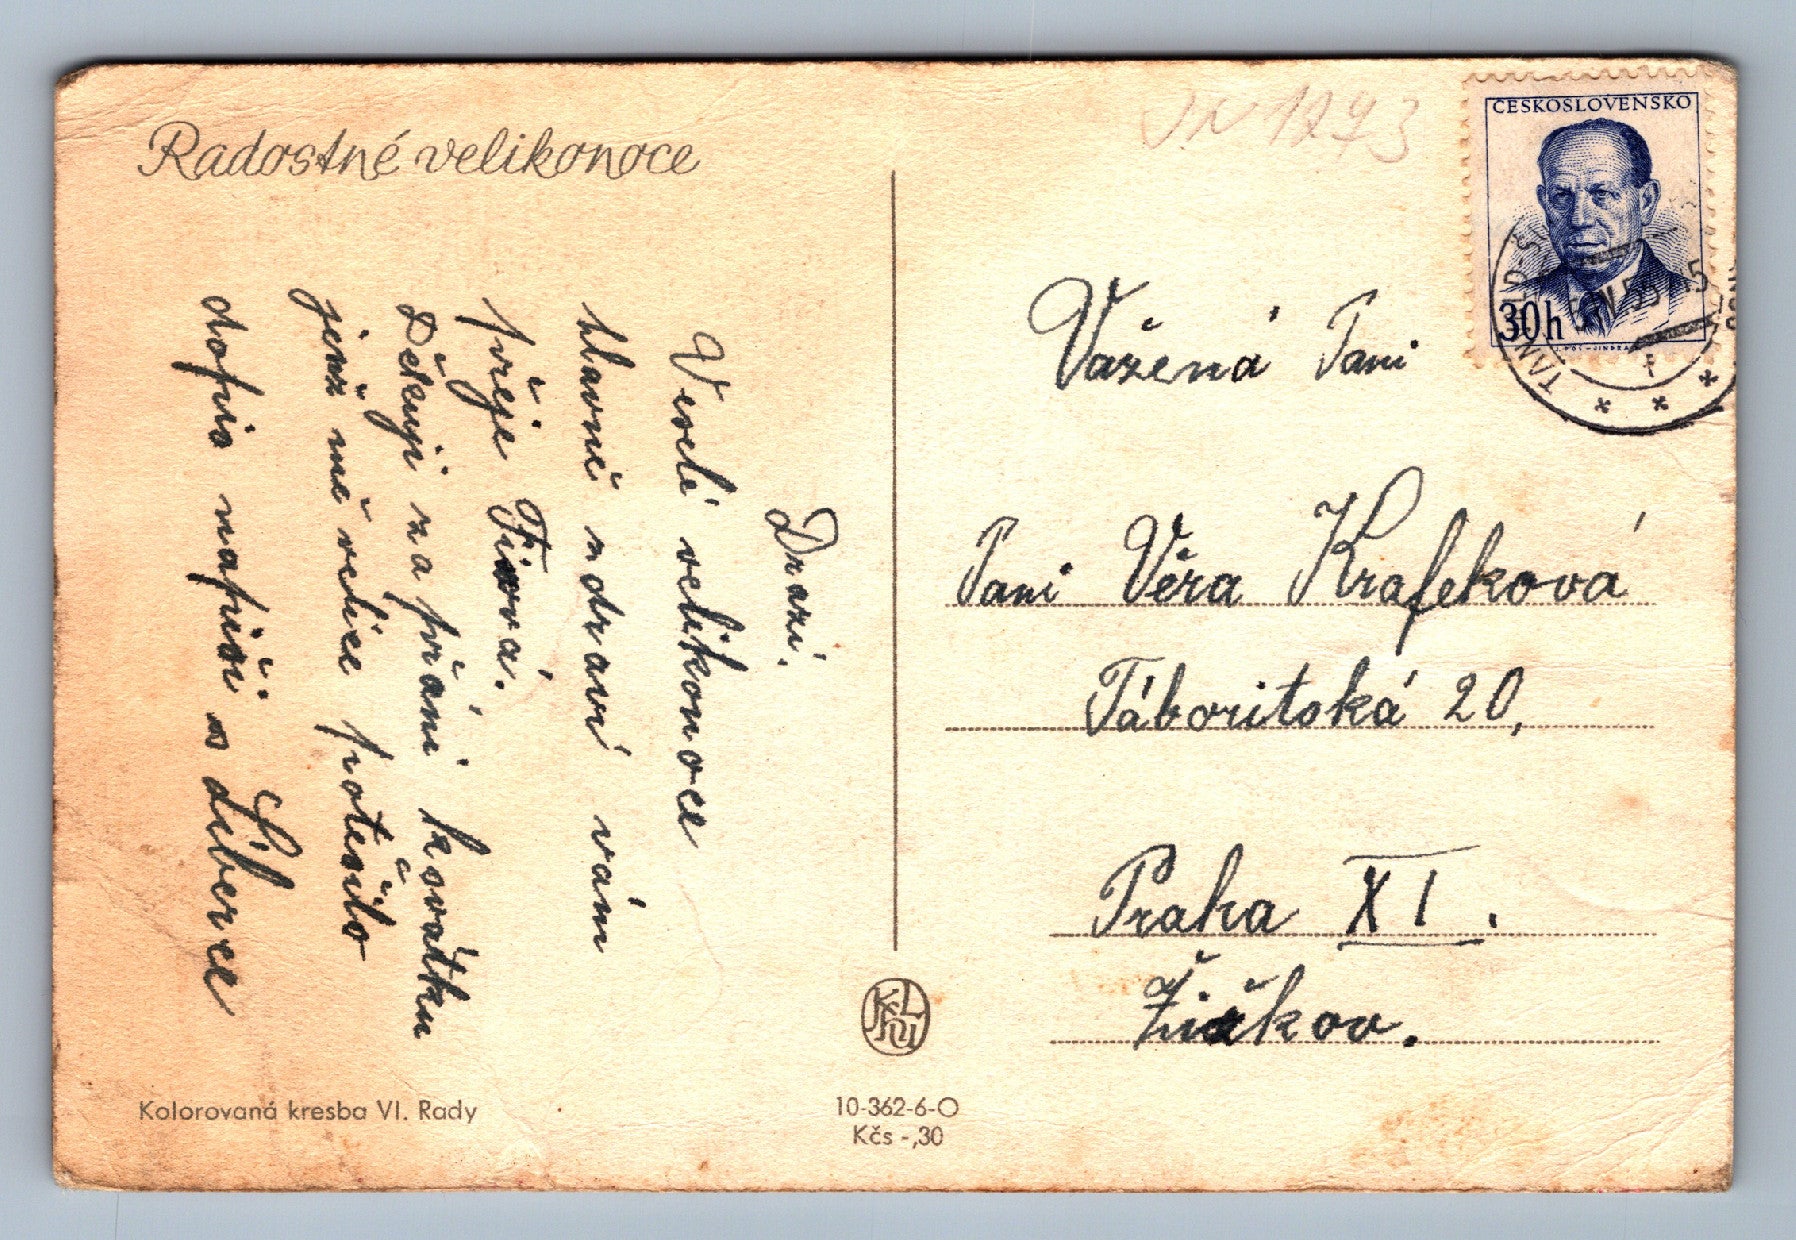 Radostné velikonoce
Drazí.
Veselé velikonoce
hlavně zdraví vám
přeje Fixová.
Děkuji za přání k svátku
jenž mě velice potěšilo
dopis napíši z Liberce
Kolorovaná kresba Vl. Rady
10-362-6-O
Kčs -,30
ČESKOSLOVENSKO
30h
TANVALD
Vážená Paní
Paní Věra Krafeková
Táboritská 20,
Praha XI.
Žižkov.